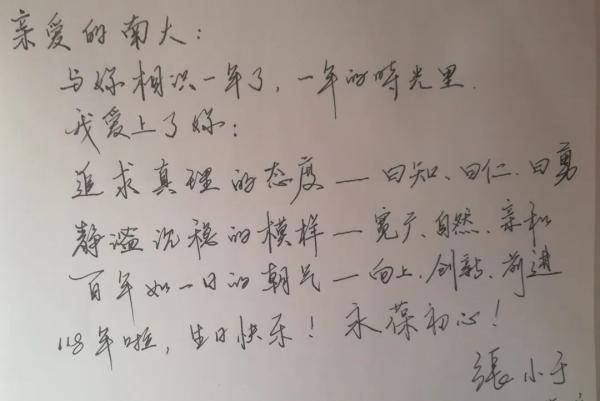 亲爱的南大：
与你相识一年了，一年的时光里
我爱上了你：
追求真理的态度——曰知、曰仁、曰勇
静谧沉稳的模样——宽广、自然、亲和
百年如一日的朝气——向上、创新、前进
118年啦，生日快乐！永葆初心！
張小于